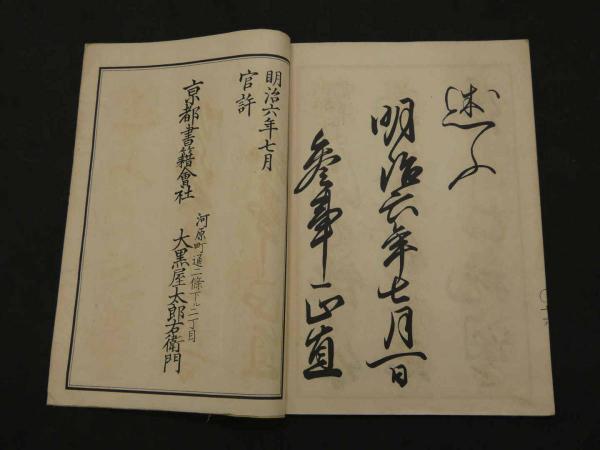 述ふ
明治六年七月一日
参事正直
明治六年七月
官許
京都書籍會社
河原町通二條下ル二丁目
大黒屋太郎右衛門